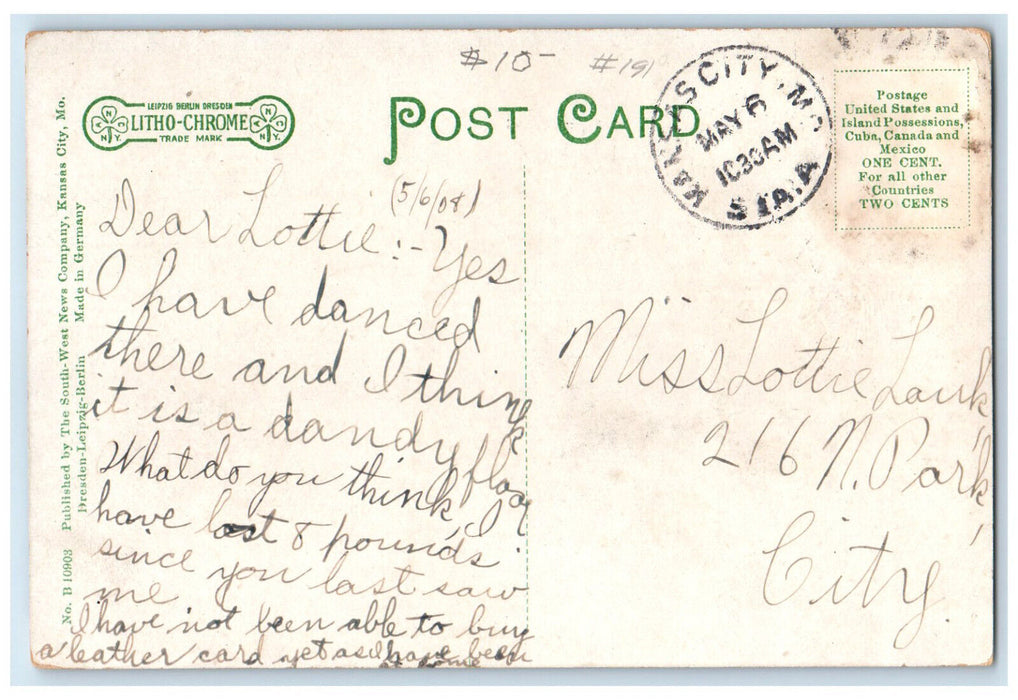 $10-
#191
LEIPZIG BERLIN DRESDEN
LITHO-CHROME
TRADE MARK
N Y.
N Y.
POST CARD
KANSAS CITY, MO.
MAY 6
1030AM
STA.A
Postage
United States and
Island Possessions,
Cuba, Canada and
Mexico
ONE CENT.
For all other
Countries
TWO CENTS
No. B 10903 Published by The South-West News Company, Kansas City, Mo.
Dresden-Leipzig-Berlin Made in Germany
(5/6/08)
Dear Lottie:- Yes
I have danced
there and I think
it is a dandy floor
What do you think, I
have lost 8 pounds
since you last saw
me
I have not been able to buy
a leather card yet as I have been
Miss Lottie Lauk
216 N. Park
City.